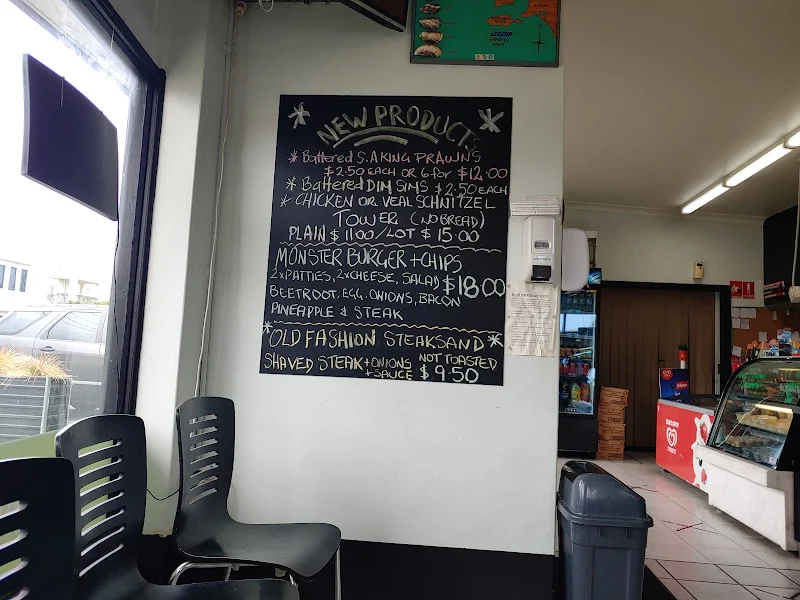 LEGEND
NEW PRODUCTS
* Battered S.A KING PRAWNS
$2.50 EACH OR 6 for $12.00
* Battered DIM SIMS $2.50 EACH
* CHICKEN OR VEAL SCHNITZEL
TOWER (NO BREAD)
PLAIN $11.00/LOT $15.00
MONSTER BURGER + CHIPS
2xPATTIES, 2xCHEESE, SALAD $18.00
BEETROOT, EGG, ONIONS, BACON
PINEAPPLE & STEAK
*OLD FASHION STEAKSAND*
SHAVED STEAK+ONIONS NOT TOASTED
+SAUCE $9.50